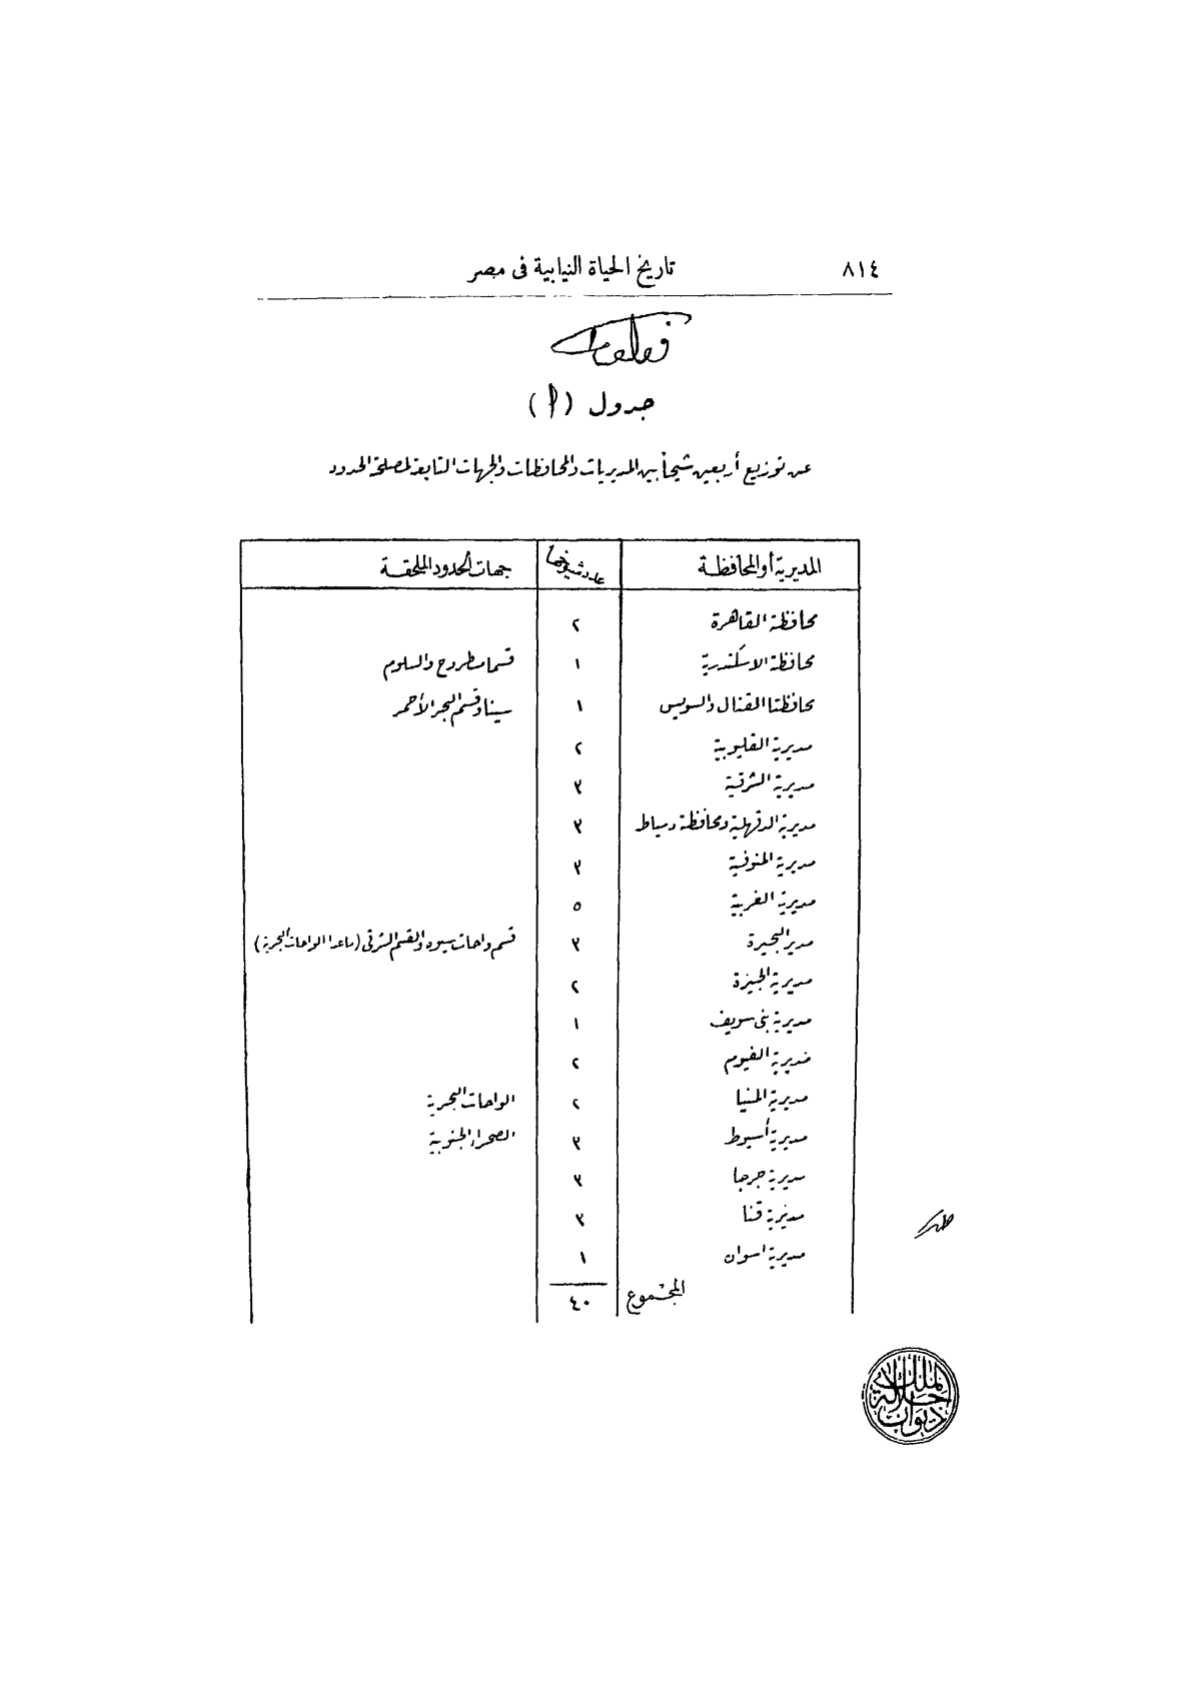 ٨١٤ تاريخ الحياة النيابية فى مصر
جدول (١)
عن توزيع أربعين شيخاً بين المديريات والمحافظات والجهات التابعة لمصلحة الحدود
المديرية أو المحافظة عدد شيوخها جهات الحدود الملحقة
محافظة القاهرة ٢
محافظة الاسكندرية ١ قسما مطروح والسلوم
محافظتا القنال والسويس ١ سينا وقسم البحر الأحمر
مديرية القليوبية ٢
مديرية الشرقية ٣
مديرية الدقهلية ومحافظة دمياط ٣
مديرية المنوفية ٣
مديرية الغربية ٥
مدير البحيرة ٣ قسم واحات سيوه والقسم الشرقى (ماعدا الواحات البحرية)
مديرية الجيزة ٢
مديرية بنى سويف ١
مديرية الفيوم ٢
مديرية المنيا ٢ الواحات البحرية
مديرية أسيوط ٣ الصحراء الجنوبية
مديرية جرجا ٣
مديرية قنا ٣
مديرية اسوان ١
المجموع ٤٠
ديوان جلالة الملك